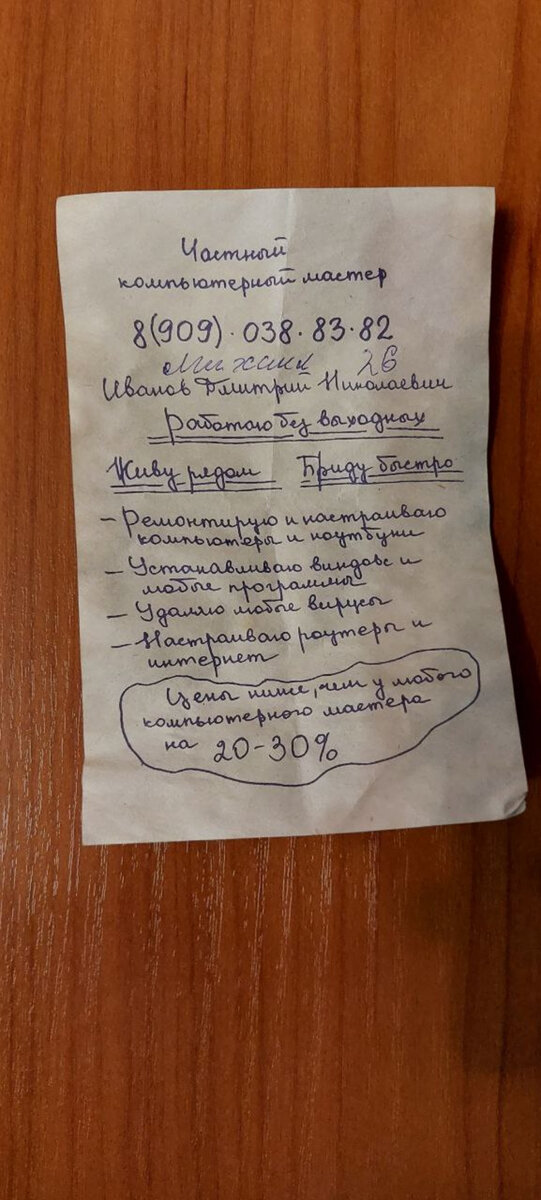 Частный
компьютерный мастер
8(909)·038·83·82
Михаил 26
Иванов Дмитрий Николаевич
Работаю без выходных
Живу рядом Приду быстро
- Ремонтирую и настраиваю
компьютеры и ноутбуки
- Устанавливаю виндовс и
любые программы
- Удаляю любые вирусы
- Настраиваю роутеры и
интернет
Цены ниже, чем у любого
компьютерного мастера
на 20-30%